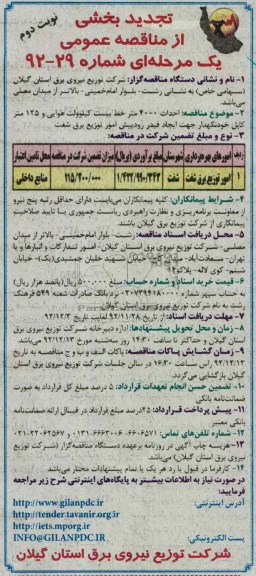 نوبت دوم
تجدید بخشی
از مناقصه عمومی
یک مرحله‌ای شماره ۲۹-۹۲
۱- نام و نشانی دستگاه مناقصه‌گزار: شرکت توزیع نیروی برق استان گیلان
(سهامی خاص) به نشانی رشت- بلوار امام خمینی- بالاتر از میدان مصلی
می‌باشد
۲- موضوع مناقصه: احداث ۴۰۰۰ متر خط بیست کیلوولت هوایی و ۱۲۵ متر
کابل خودنگهدار جهت ایجاد فیدر رودپیش امور توزیع برق شفت
۳- نوع و مبلغ تضمین شرکت در مناقصه:
ردیف امور/امورهای بهره‌برداری شهرستان مبلغ برآوردی (بریال) میزان تضمین شرکت در مناقصه محل تامین اعتبار
۱ امور توزیع برق شفت شفت ۱/۴۳۲/۹۹۰/۳۴۳ ۱۱۵/۲۰۰/۰۰۰ منابع داخلی
۴- شرایط پیمانکاران: کلیه پیمانکاران می‌بایست دارای حداقل رتبه پنج نیرو
از معاونت برنامه‌ریزی و نظارت راهبردی ریاست جمهوری یا تایید صلاحیت
پیمانکاری از شرکت توزیع برق گیلان باشند
۵- محل دریافت اسناد مناقصه: رشت- بلوار امام خمینی- بالاتر از میدان
مصلی- شرکت توزیع نیروی برق استان گیلان- امور تدارکات و انبارها و یا
تهران- سعادت‌آباد- میدان کاج- خیابان شهید
۶- قیمت خرید اسناد و شماره حساب: مبلغ ۵۰۰,۰۰۰ ریال (پانصد هزار ریال)
به حساب سپهر شماره نزد بانک صادرات شعبه ۵۴۹ فرهنگ
رشت به نام شرکت توزیع نیروی برق استان گیلان
۷- مهلت دریافت اسناد: از تاریخ ۹۲/۱۱/۲۸ لغایت تاریخ ۹۲/۱۲/۳
۸- زمان و محل تحویل پیشنهادها: اداره دبیرخانه شرکت توزیع نیروی برق
استان گیلان و حداکثر تا ساعت ۱۴:۳۰ روز سه‌شنبه مورخ ۹۲/۱۲/۱۳ می‌باشد
۹- زمان گشایش پاکات مناقصه: پاکات الف و ب و ج مناقصه به تاریخ
۹۲/۱۲/۱۴ راس ساعت ۱۶:۳۰ در سالن جلسات شرکت توزیع نیروی برق استان
گیلان بازگشایی می‌گردد
۱۰- تضمین حسن انجام تعهدات قرارداد: ۵ درصد مبلغ کل قرارداد به صورت
ضمانت‌نامه بانکی
۱۱- پیش پرداخت قرارداد: ۲۵ درصد مبلغ قرارداد در قبال ارائه ضمانت‌نامه
بانکی معتبر
۱۲- شماره تلفن‌های تماس:
۱۳- هزینه چاپ آگهی در روزنامه برعهده دستگاه مناقصه‌گزار (شرکت توزیع
نیروی برق استان گیلان) می‌باشد
۱۴- کارفرما در قبول یا رد هر یک یا تمام پیشنهادات مختار می‌باشد
در صورت نیاز به اطلاعات بیشتر به پایگاه‌های اینترنتی شرح زیر مراجعه
فرمایید:
آدرس اینترنتی: http://www.gilanpdc.ir
http://tender.tavanir.org.ir
http://iets.mporg.ir
پست الکترونیکی: INFO@GILANPDC.IR
شرکت توزیع نیروی برق استان گیلان